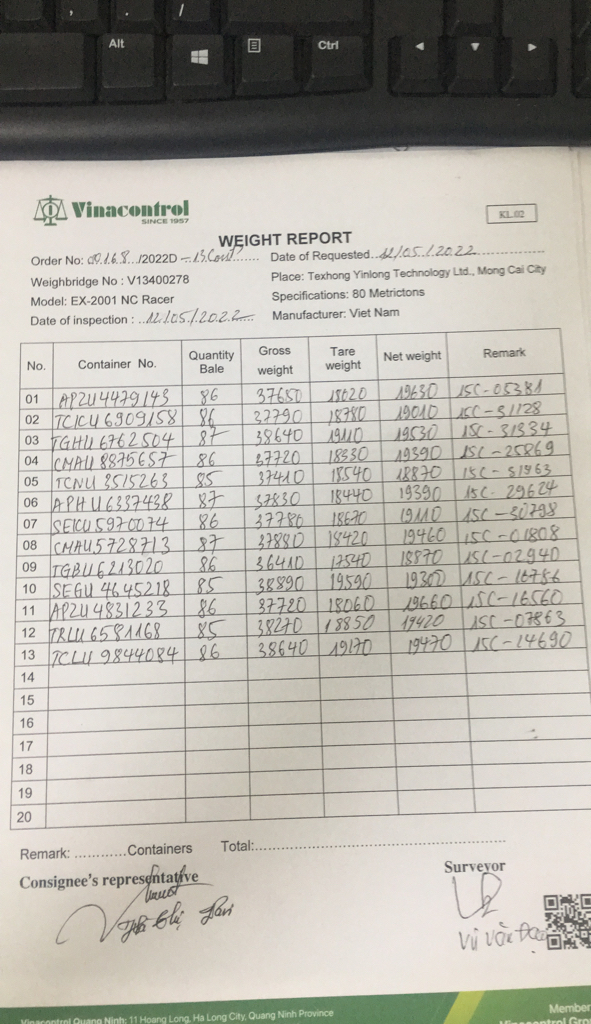 , . /
Alt Ctrl
Vinacontrol
SINCE 1957
KL.02
WEIGHT REPORT
Order No: 00.1.6.8../2022D - 13 Cont Date of Requested..12/05/2022
Weighbridge No : V13400278 Place: Texhong Yinlong Technology Ltd., Mong Cai City
Model: EX-2001 NC Racer Specifications: 80 Metrictons
Date of inspection : ..12/05/2022 Manufacturer: Viet Nam
No. Container No. Quantity Bale Gross weight Tare weight Net weight Remark
01 APZU4479143 86 37650 18020 19630 15C-05381
02 TCICU6909158 86 37790 18780 19010 15C-31128
03 TGHU6762504 87 38640 19110 19530 15C-31334
04 CMAU8875657 86 37720 18330 19390 15C-25869
05 TCNU3515263 85 37410 18540 18870 15C-31963
06 APHU6337438 87 37830 18440 19390 15C-29624
07 SEKU5970074 86 37780 18670 19110 15C-30798
08 CMAU5728713 87 37880 18420 19460 15C-01808
09 TGBU6213020 86 36410 17540 18870 15C-02940
10 SEGU4645218 85 38890 19590 19300 15C-16756
11 APZU4831233 86 37720 18060 19660 15C-16560
12 TRLU6581168 85 38270 18850 19420 15C-07863
13 TCLU9844084 86 38640 19170 19470 15C-14690
14
15
16
17
18
19
20
Remark: .............Containers Total:
Consignee's representative Surveyor
Vũ Văn
Vinacontrol Quang Ninh: 11 Hoang Long, Ha Long City, Quang Ninh Province
Member
Vinacontrol Gro